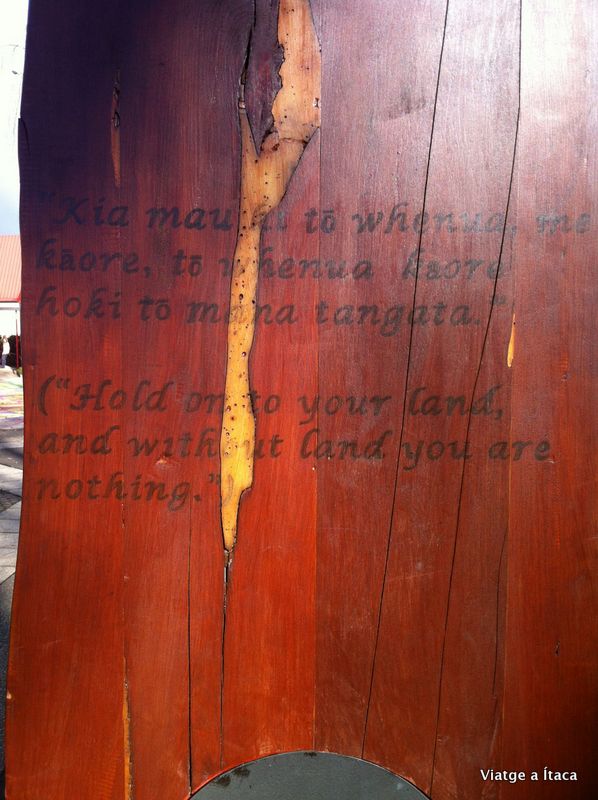 "Kia mau ki tō whenua, me
kāore, tō whenua kāore
hoki tō mana tangata."
("Hold on to your land,
and without land you are
nothing.")
Viatge a Ítaca